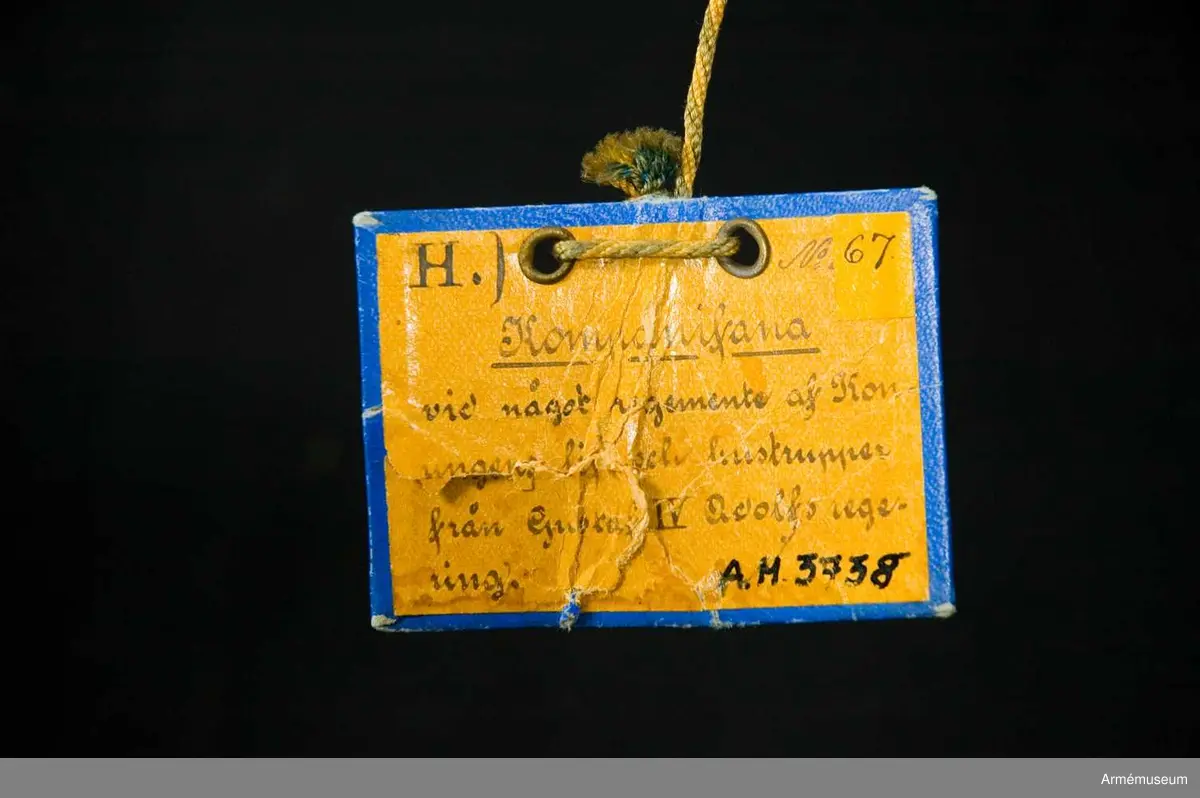 H.) No. 67
Kompanifana
vid något regemente af Kon-
ungens lif och hustrupper
från Gustaf IV Adolfs rege-
ring.
A.H. 3738
Armémuseum